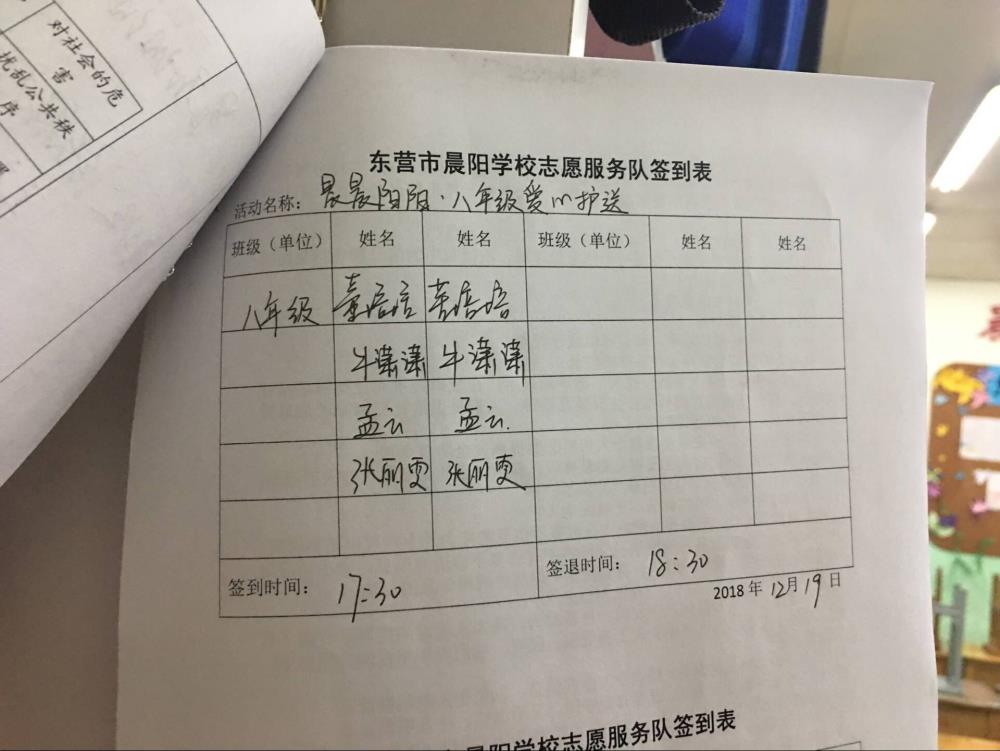 对社会的危
害
扰乱公共秩
序
东营市晨阳学校志愿服务队签到表
活动名称： 晨晨阳阳·八年级爱心护送
班级（单位） 姓名 姓名 班级（单位） 姓名 姓名
八年级 董培培 董培培
牛潇潇 牛潇潇
孟云 孟云
张丽雯 张丽雯
签到时间： 17:30 签退时间： 18:30
2018年12月19日
晨阳学校志愿服务队签到表